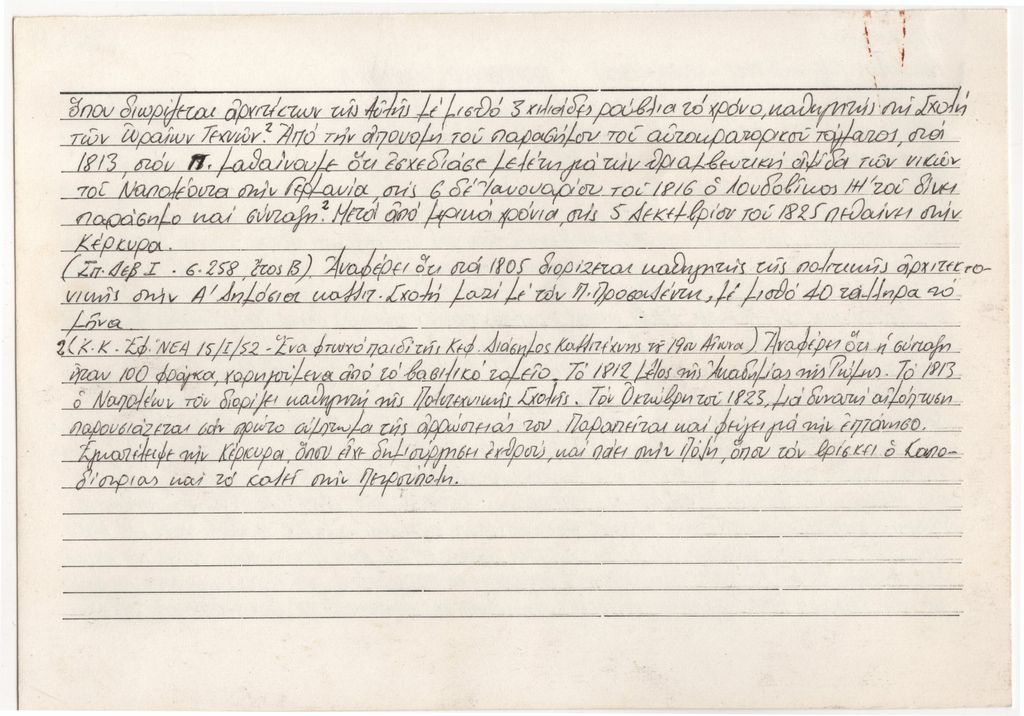 ὅπου διορίζεται ἀρχιτέκτων τῆς Αὐλῆς μέ μισθό 3 χιλιάδες ρούβλια τό χρόνο, καθηγητής στή Σχολή
τῶν Ὡραίων Τεχνῶν.² Ἀπό τήν ἀπονομή τοῦ παρασήμου τοῦ αὐτοκρατορικοῦ τάγματος, στά
1813, στόν Π. μαθαίνουμε ὅτι ἐσχεδίασε μελέτη γιά τήν θριαμβευτική ἁψίδα τῶν νικῶν
τοῦ Ναπολέοντα στήν Γερμανία στίς 6 δέ Ἰανουαρίου τοῦ 1816 ὁ Λουδοβίκος ΙΗ' τοῦ δίνει
παράσημο καί σύνταξη.² Μετά ἀπό μερικά χρόνια, στίς 5 Δεκεμβρίου τοῦ 1825 πεθαίνει στήν
Κέρκυρα.
(Σπ. Δεβ Ι. σ. 258, ἔτος Β). Ἀναφέρει ὅτι στά 1805 διορίζεται καθηγητής τῆς πολιτικῆς ἀρχιτεκτο-
νικῆς στήν Α' Δημόσια καλλιτ. Σχολή μαζί μέ τόν Π. Προσαλέντη, μέ μισθό 40 τάλληρα τό
μῆνα.
2 (Κ.Κ. Ἐφ. ΝΕΑ 15/Ι/52 - Ἕνα φτωχό παιδί τῆς Κεφ. Διάσημος Καλλιτέχνης τοῦ 19ου Αἰῶνα) Ἀναφέρει ὅτι ἡ σύνταξη
ἦταν 100 φράγκα, χορηγούμενα ἀπό τό βασιλικό ταμεῖο. Τό 1812 μέλος τῆς Ἀκαδημίας τῆς Ρώμης. Τό 1813
ὁ Ναπολέων τόν διορίζει καθηγητή τῆς Πολυτεχνικῆς Σχολῆς. Τόν Ὀκτώβρη τοῦ 1823, μιά δυνατή αἱμόπτυση
παρουσιάζεται σάν πρῶτο σύμπτωμα τῆς ἀρρώστειάς του. Παραιτεῖται καί φεύγει γιά τήν ἑπτάνησο.
Ἐγκατέλειψε τήν Κέρκυρα, ὅπου εἶχε δημιουργήσει ἐχθρούς, καί πάει στήν Πόλη, ὅπου τόν βρίσκει ὁ Καπο-
δίστριας καί τό καλεῖ στήν Πετρούπολη.